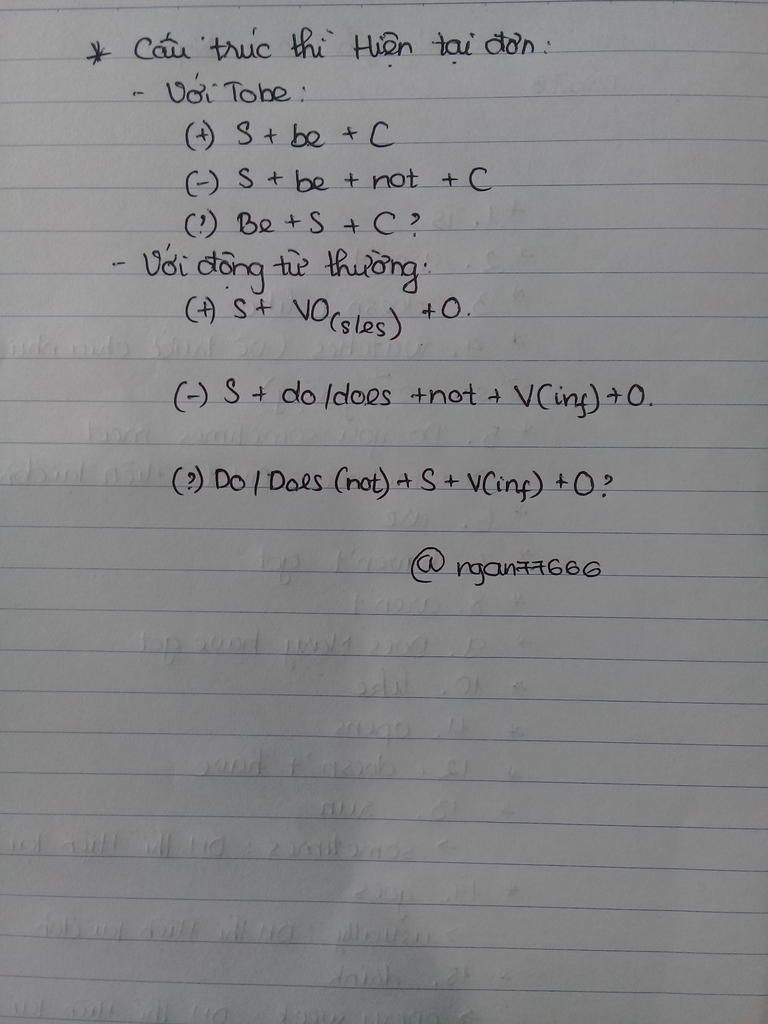 * Cấu trúc thì Hiện tại đơn:
- Với Tobe:
(+) S + be + C
(-) S + be + not + C
(?) Be + S + C ?
- Với động từ thường:
(+) S + VO(s/es) + O.
(-) S + do/does + not + V(inf) + O.
(?) Do/Does (not) + S + V(inf) + O?
@ngan77666